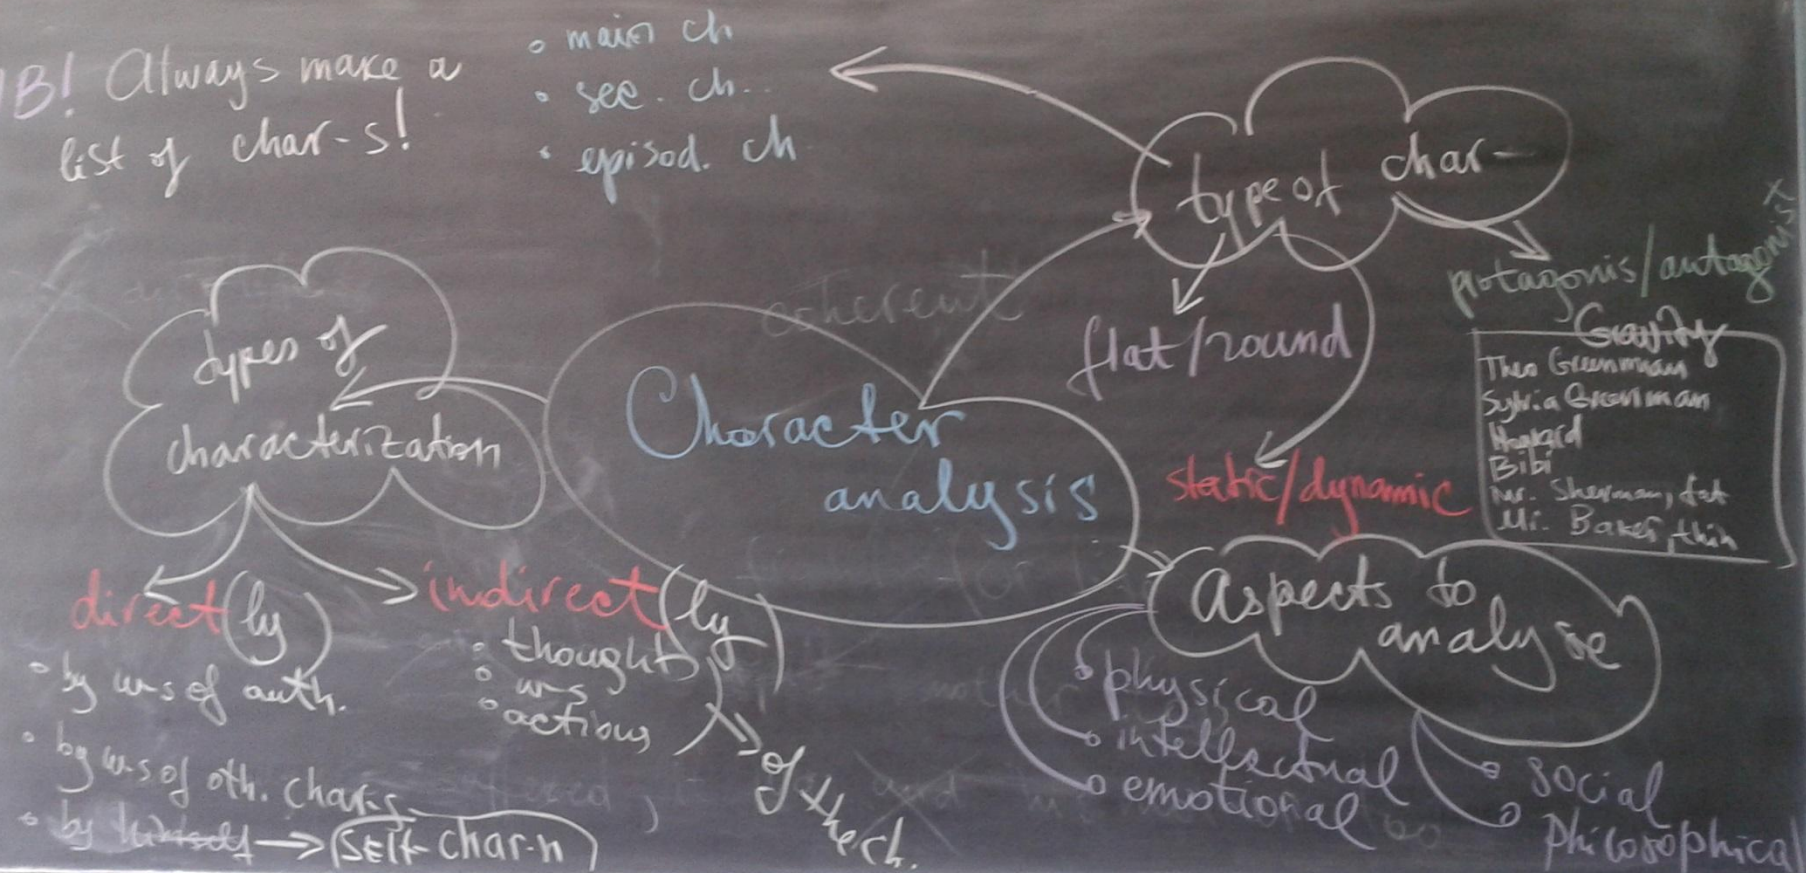 NB! Always make a
list of char-s!
• main ch
• sec. ch..
• episod. ch
type of char-
protagonis/antagonist
flat/round
static/dynamic
Gravity
Theo Greenman
Sylvia Greenman
Bibi
Mr. Sherman, fat
Mr. Baker, thin
coherent
Character
analysis
types of
characterization
direct(ly)
• by w-s of auth.
• by w-s of oth. char-s
• by himself → self-char-n
indirect(ly)
• thought
• w-s
• actions
of the ch.
Aspects to
analyse
• physical
• intellectual
• emotional
• social
• philosophical